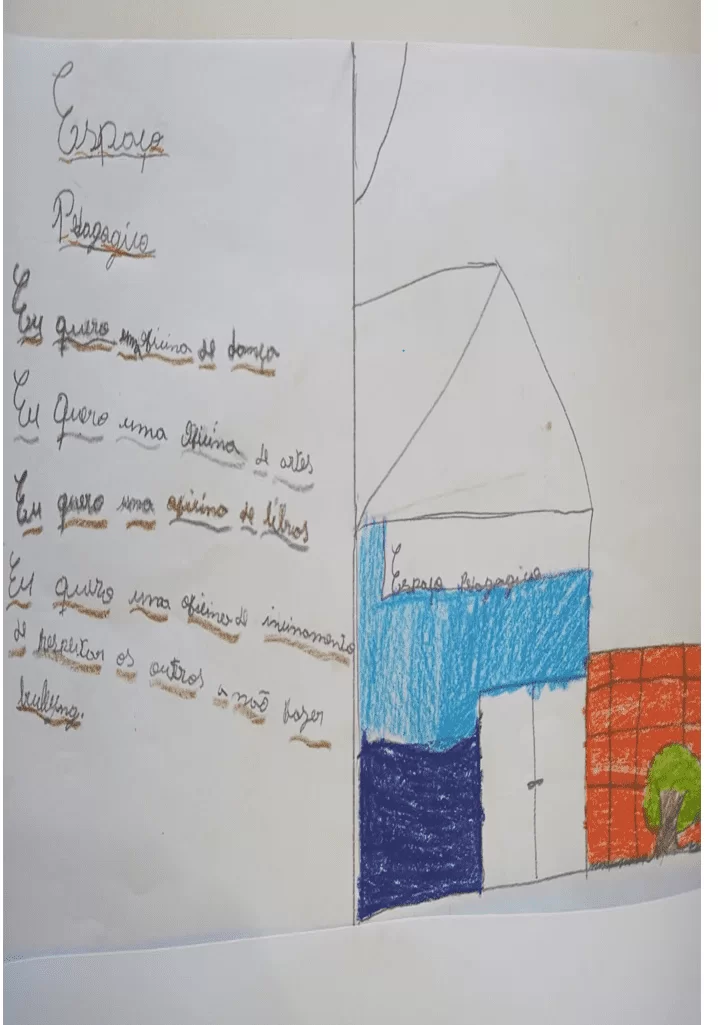 Espaço
Pedagogico
Eu quero uma oficina de dança
Eu quero uma oficina de artes
Eu quero uma oficina de libros
Eu quero uma oficina de insinamento
de respeitar os outros a não fazer
bullying.
Espaço Pedagogico